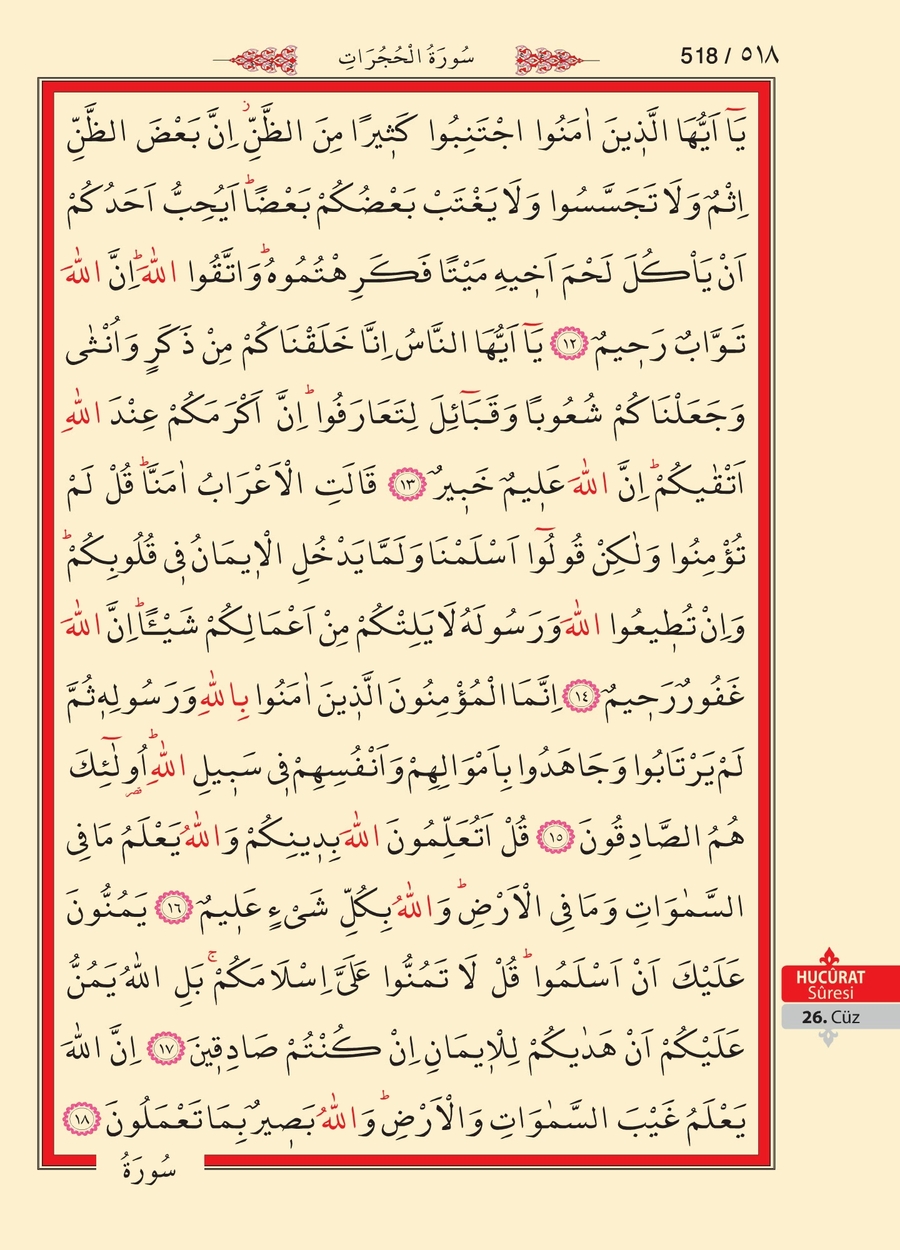 518 / ٥١٨
سُورَةُ الْحُجُرَاتِ
يَٓا اَيُّهَا الَّذ۪ينَ اٰمَنُوا اجْتَنِبُوا كَث۪يرًا مِنَ الظَّنِّۘ اِنَّ بَعْضَ الظَّنِّ
اِثْمٌ وَلَا تَجَسَّسُوا وَلَا يَغْتَبْ بَعْضُكُمْ بَعْضًاۜ اَيُحِبُّ اَحَدُكُمْ
اَنْ يَاْكُلَ لَحْمَ اَخ۪يهِ مَيْتًا فَكَرِهْتُمُوهُۜ وَاتَّقُوا اللّٰهَۜ اِنَّ اللّٰهَ
تَوَّابٌ رَح۪يمٌ ﴿١٢﴾ يَٓا اَيُّهَا النَّاسُ اِنَّا خَلَقْنَاكُمْ مِنْ ذَكَرٍ وَاُنْثٰى
وَجَعَلْنَاكُمْ شُعُوبًا وَقَبَٓائِلَ لِتَعَارَفُواۜ اِنَّ اَكْرَمَكُمْ عِنْدَ اللّٰهِ
اَتْقٰيكُمْۜ اِنَّ اللّٰهَ عَل۪يمٌ خَب۪يرٌ ﴿١٣﴾ قَالَتِ الْاَعْرَابُ اٰمَنَّاۜ قُلْ لَمْ
تُؤْمِنُوا وَلٰكِنْ قُولُٓوا اَسْلَمْنَا وَلَمَّا يَدْخُلِ الْا۪يمَانُ ف۪ي قُلُوبِكُمْۜ
وَاِنْ تُط۪يعُوا اللّٰهَ وَرَسُولَهُ لَا يَلِتْكُمْ مِنْ اَعْمَالِكُمْ شَيْـًٔاۜ اِنَّ اللّٰهَ
غَفُورٌ رَح۪يمٌ ﴿١٤﴾ اِنَّمَا الْمُؤْمِنُونَ الَّذ۪ينَ اٰمَنُوا بِاللّٰهِ وَرَسُولِه۪ ثُمَّ
لَمْ يَرْتَابُوا وَجَاهَدُوا بِاَمْوَالِهِمْ وَاَنْفُسِهِمْ ف۪ي سَب۪يلِ اللّٰهِۜ اُو۬لٰٓئِكَ
هُمُ الصَّادِقُونَ ﴿١٥﴾ قُلْ اَتُعَلِّمُونَ اللّٰهَ بِد۪ينِكُمْ وَاللّٰهُ يَعْلَمُ مَا فِي
السَّمٰوَاتِ وَمَا فِي الْاَرْضِۜ وَاللّٰهُ بِكُلِّ شَيْءٍ عَل۪يمٌ ﴿١٦﴾ يَمُنُّونَ
عَلَيْكَ اَنْ اَسْلَمُواۜ قُلْ لَا تَمُنُّوا عَلَيَّ اِسْلَامَكُمْۚ بَلِ اللّٰهُ يَمُنُّ
عَلَيْكُمْ اَنْ هَدٰيكُمْ لِلْا۪يمَانِ اِنْ كُنْتُمْ صَادِق۪ينَ ﴿١٧﴾ اِنَّ اللّٰهَ
يَعْلَمُ غَيْبَ السَّمٰوَاتِ وَالْاَرْضِۜ وَاللّٰهُ بَص۪يرٌ بِمَا تَعْمَلُونَ ﴿١٨﴾
سُورَةُ
HUCÛRAT
Sûresi
26. Cüz